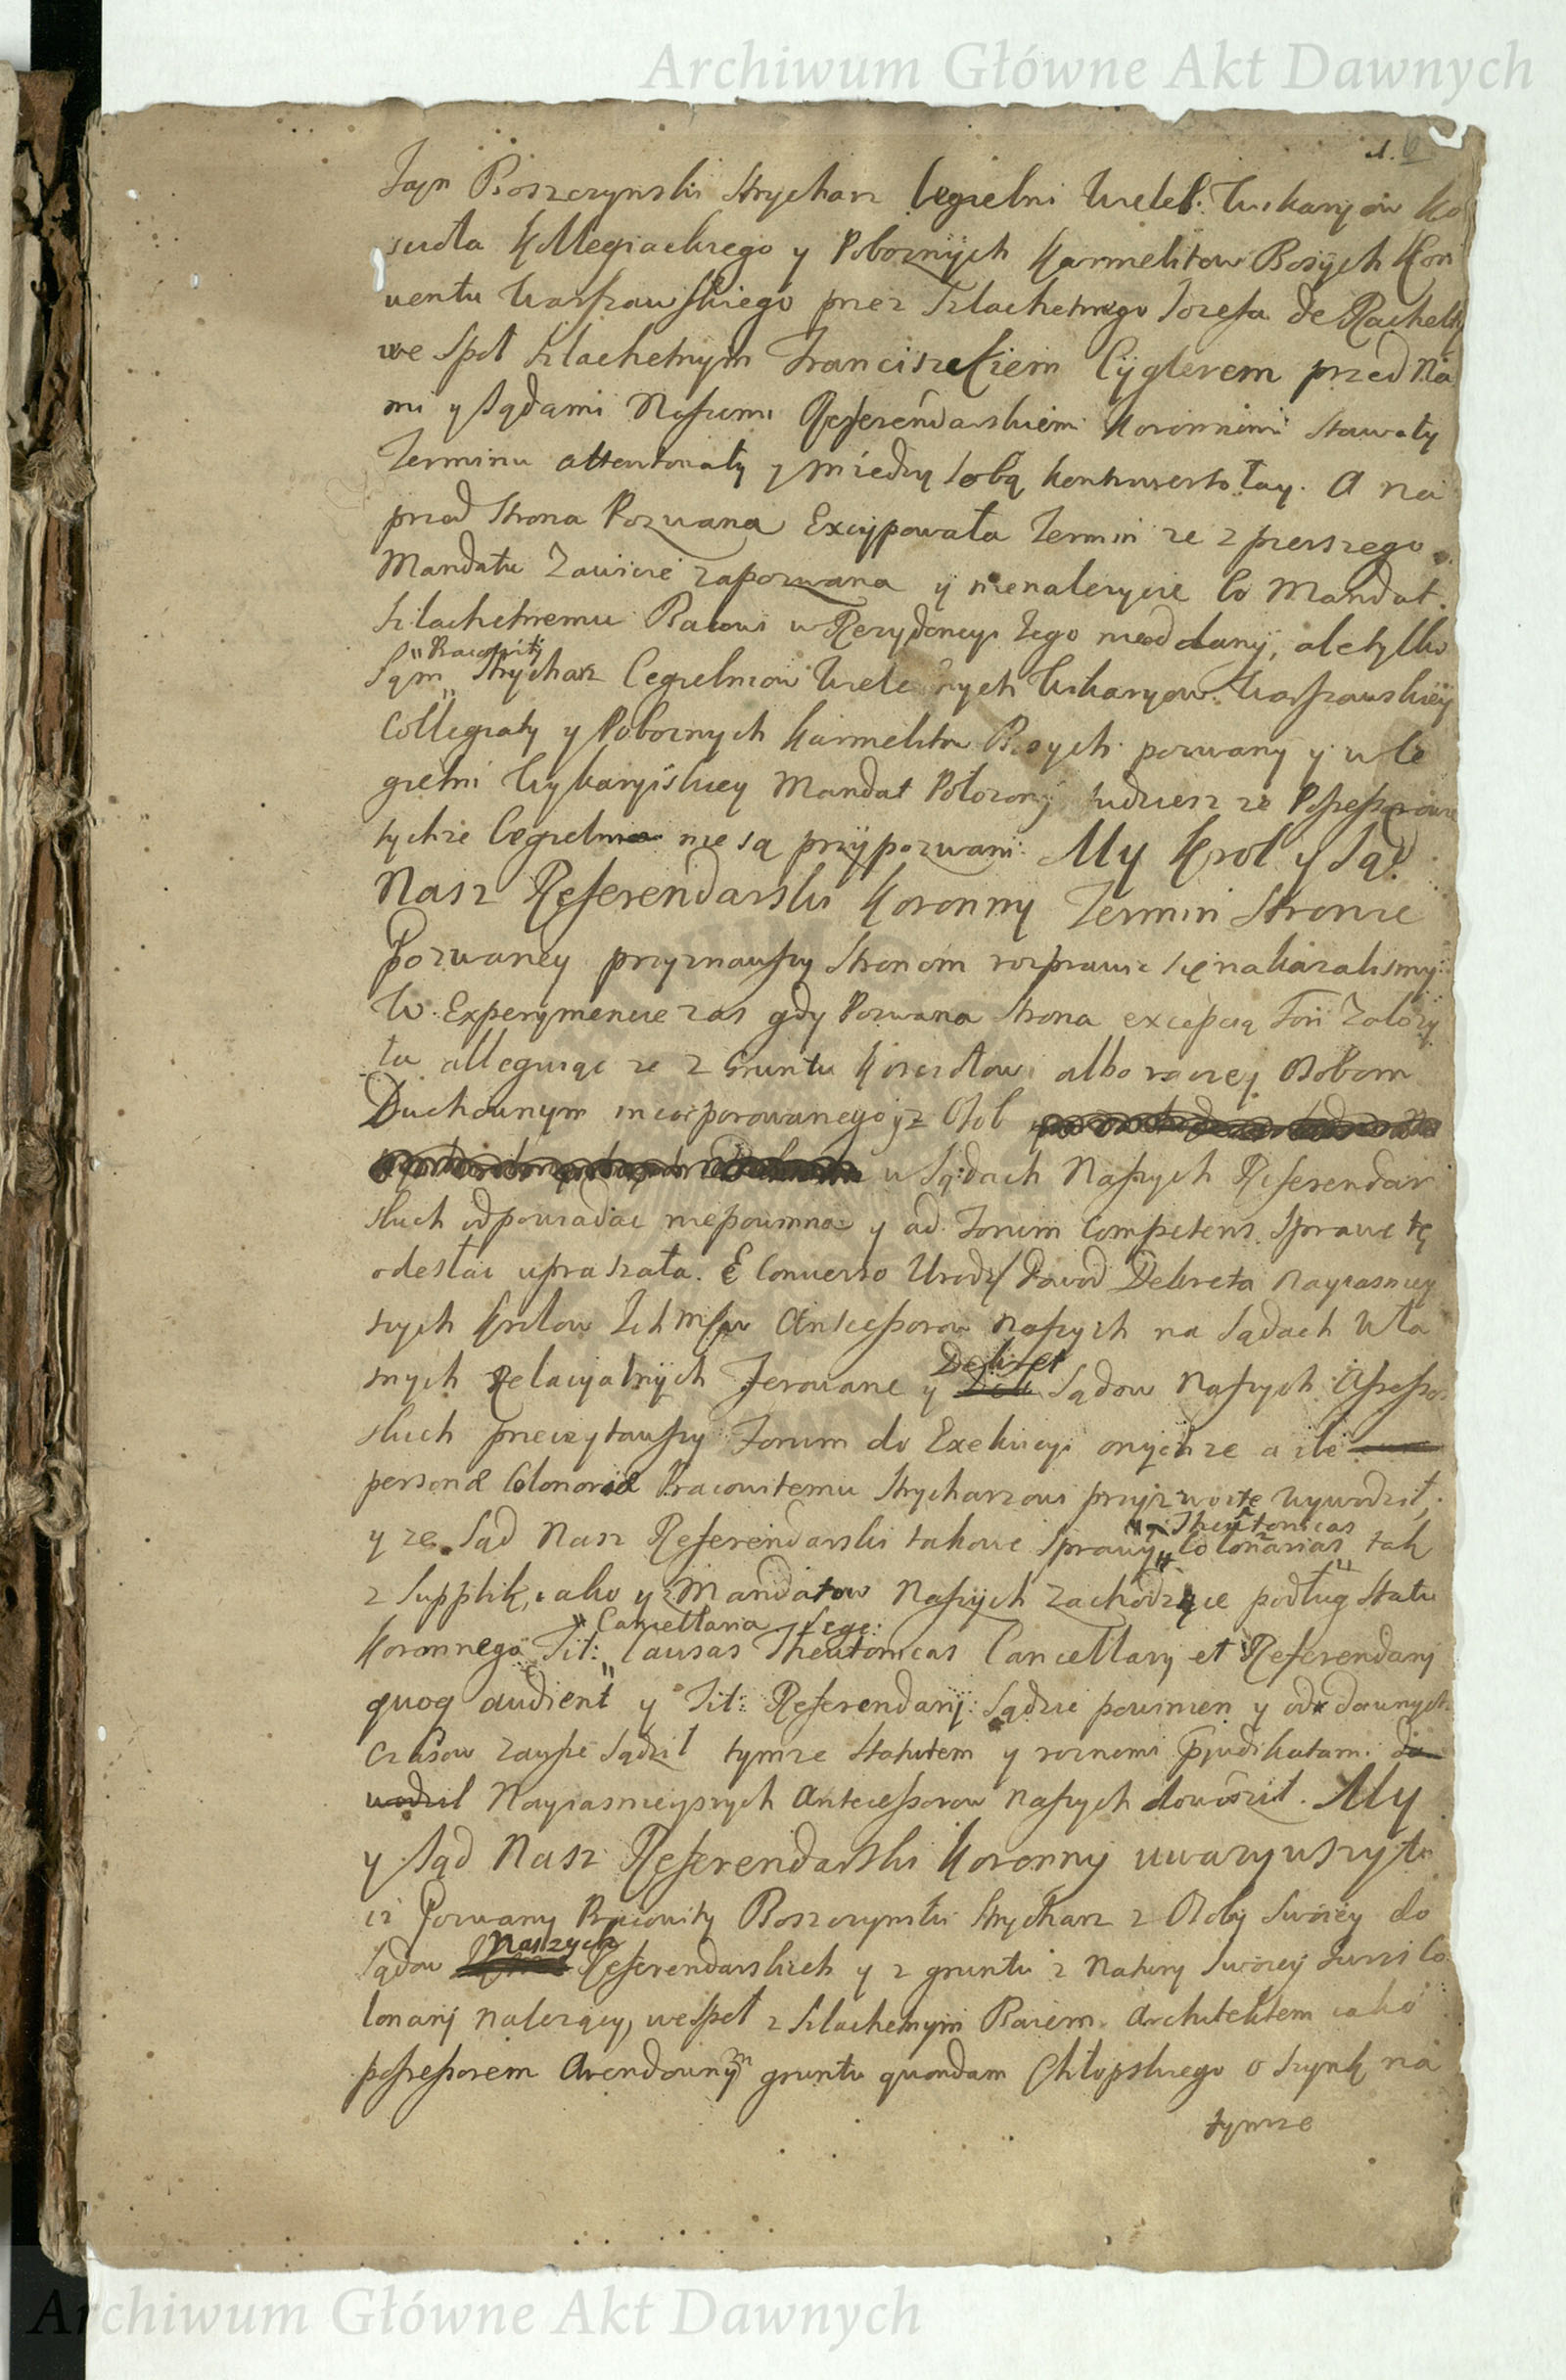 Archiwum Główne Akt Dawnych
1.
Jan Roszczynski Strycharz Cegielni Wieleb: Wikaryów Ko
scioła Kollegiackiego y Poboznÿch Karmelitow Bosÿch Kon
wentu Warszawskiego przez Szlachetnego Jozefa de
we społ Szlachetnym Franciszkiem Cÿglerem przed Na
mi y Sądami Naszemi Referendarskiemi Koronnemi stawały
Terminu attentowały y miedzy sobą kontrowertowały. A na
przod Strona Pozwana Excÿpowała Termin ze z pierszego
Mandatu Zawicie zapozwana ÿ nienalezycie bo Mandat
Szlachetnemu Bacowi w Rezydencyi Jego nieoddany, ale tylko
"Pracowity
Sąm " Strycharz Cegielniow Wielebnych Wikaryow Warszawskieÿ
Collegiaty y Poboznych Karmelitow Bosych pozwany y w Ce
gielni Wykaryiskiey Mandat Połozony tudziesz ze Possessorowie
tychze Cegielni nie są przÿpozwani. My Krol y Sąd
Nasz Referendarski Koronny Termin Stronie
Pozwaney przyznawszy Stronom rozprawic się nakazalismy
W Experymencie zas gdy Pozwana Strona excepcią Fori Załozy
ła allegując ze z Gruntu Koscistowi albo raczej Osobom
Duchownym incorporowanego y z Osob
w Sądach Naszych Referendar
skich odpowiadac niepowinna y ad Forum Competens Sprawe tę
odesłac upraszała. E Converso Urodz: Dowod Dekreta Nayiasniey
szych Krolow Ich Mscow Antecessorow naszych na Sądach Wła
snych Relacyalnÿch Ferowane y Dekret Sądow Naszych Assesso
skich przeczytawszy Forum do Exekucyi onychze a ile
personæ Colonariæ Pracowitemu Strycharzowi przyzwoite Wywodził,
y ze Sąd Nasz Referendarski takowe Sprawy " Theutonicas
Colonarias " tak
z Supplik, iako y z Mandatow Naszÿch zachodzące podług Statu
"Cancellaria Lege:
Koronnego Tit: " Causas Theutonicas Cancellarÿ et Referendarÿ
quoq audient" y Tit: Referendarÿ: Sądzic powinien y od dawnych
czasow zawsze Sądzil tymze Statutem y roznemi Præjudikatami do
wodzil Nayiasnieyszych Antecessorow Naszych dowodził. My
y Sąd Nasz Referendarski Koronny uwazywszy to
iz Pozwany Pracowity Roszczynski Strycharz z Osoby Swoiey do
Sądow Naszych Referendarskich y z gruntu z Natury Swoiey Juris Co
lonarÿ nalezący, wespoł z Szlachetnym Bacem Architektem iako
possessorem Arendownym gruntu quondam Chłopskiego o Szynk na
tymze
Archiwum Główne Akt Dawnych